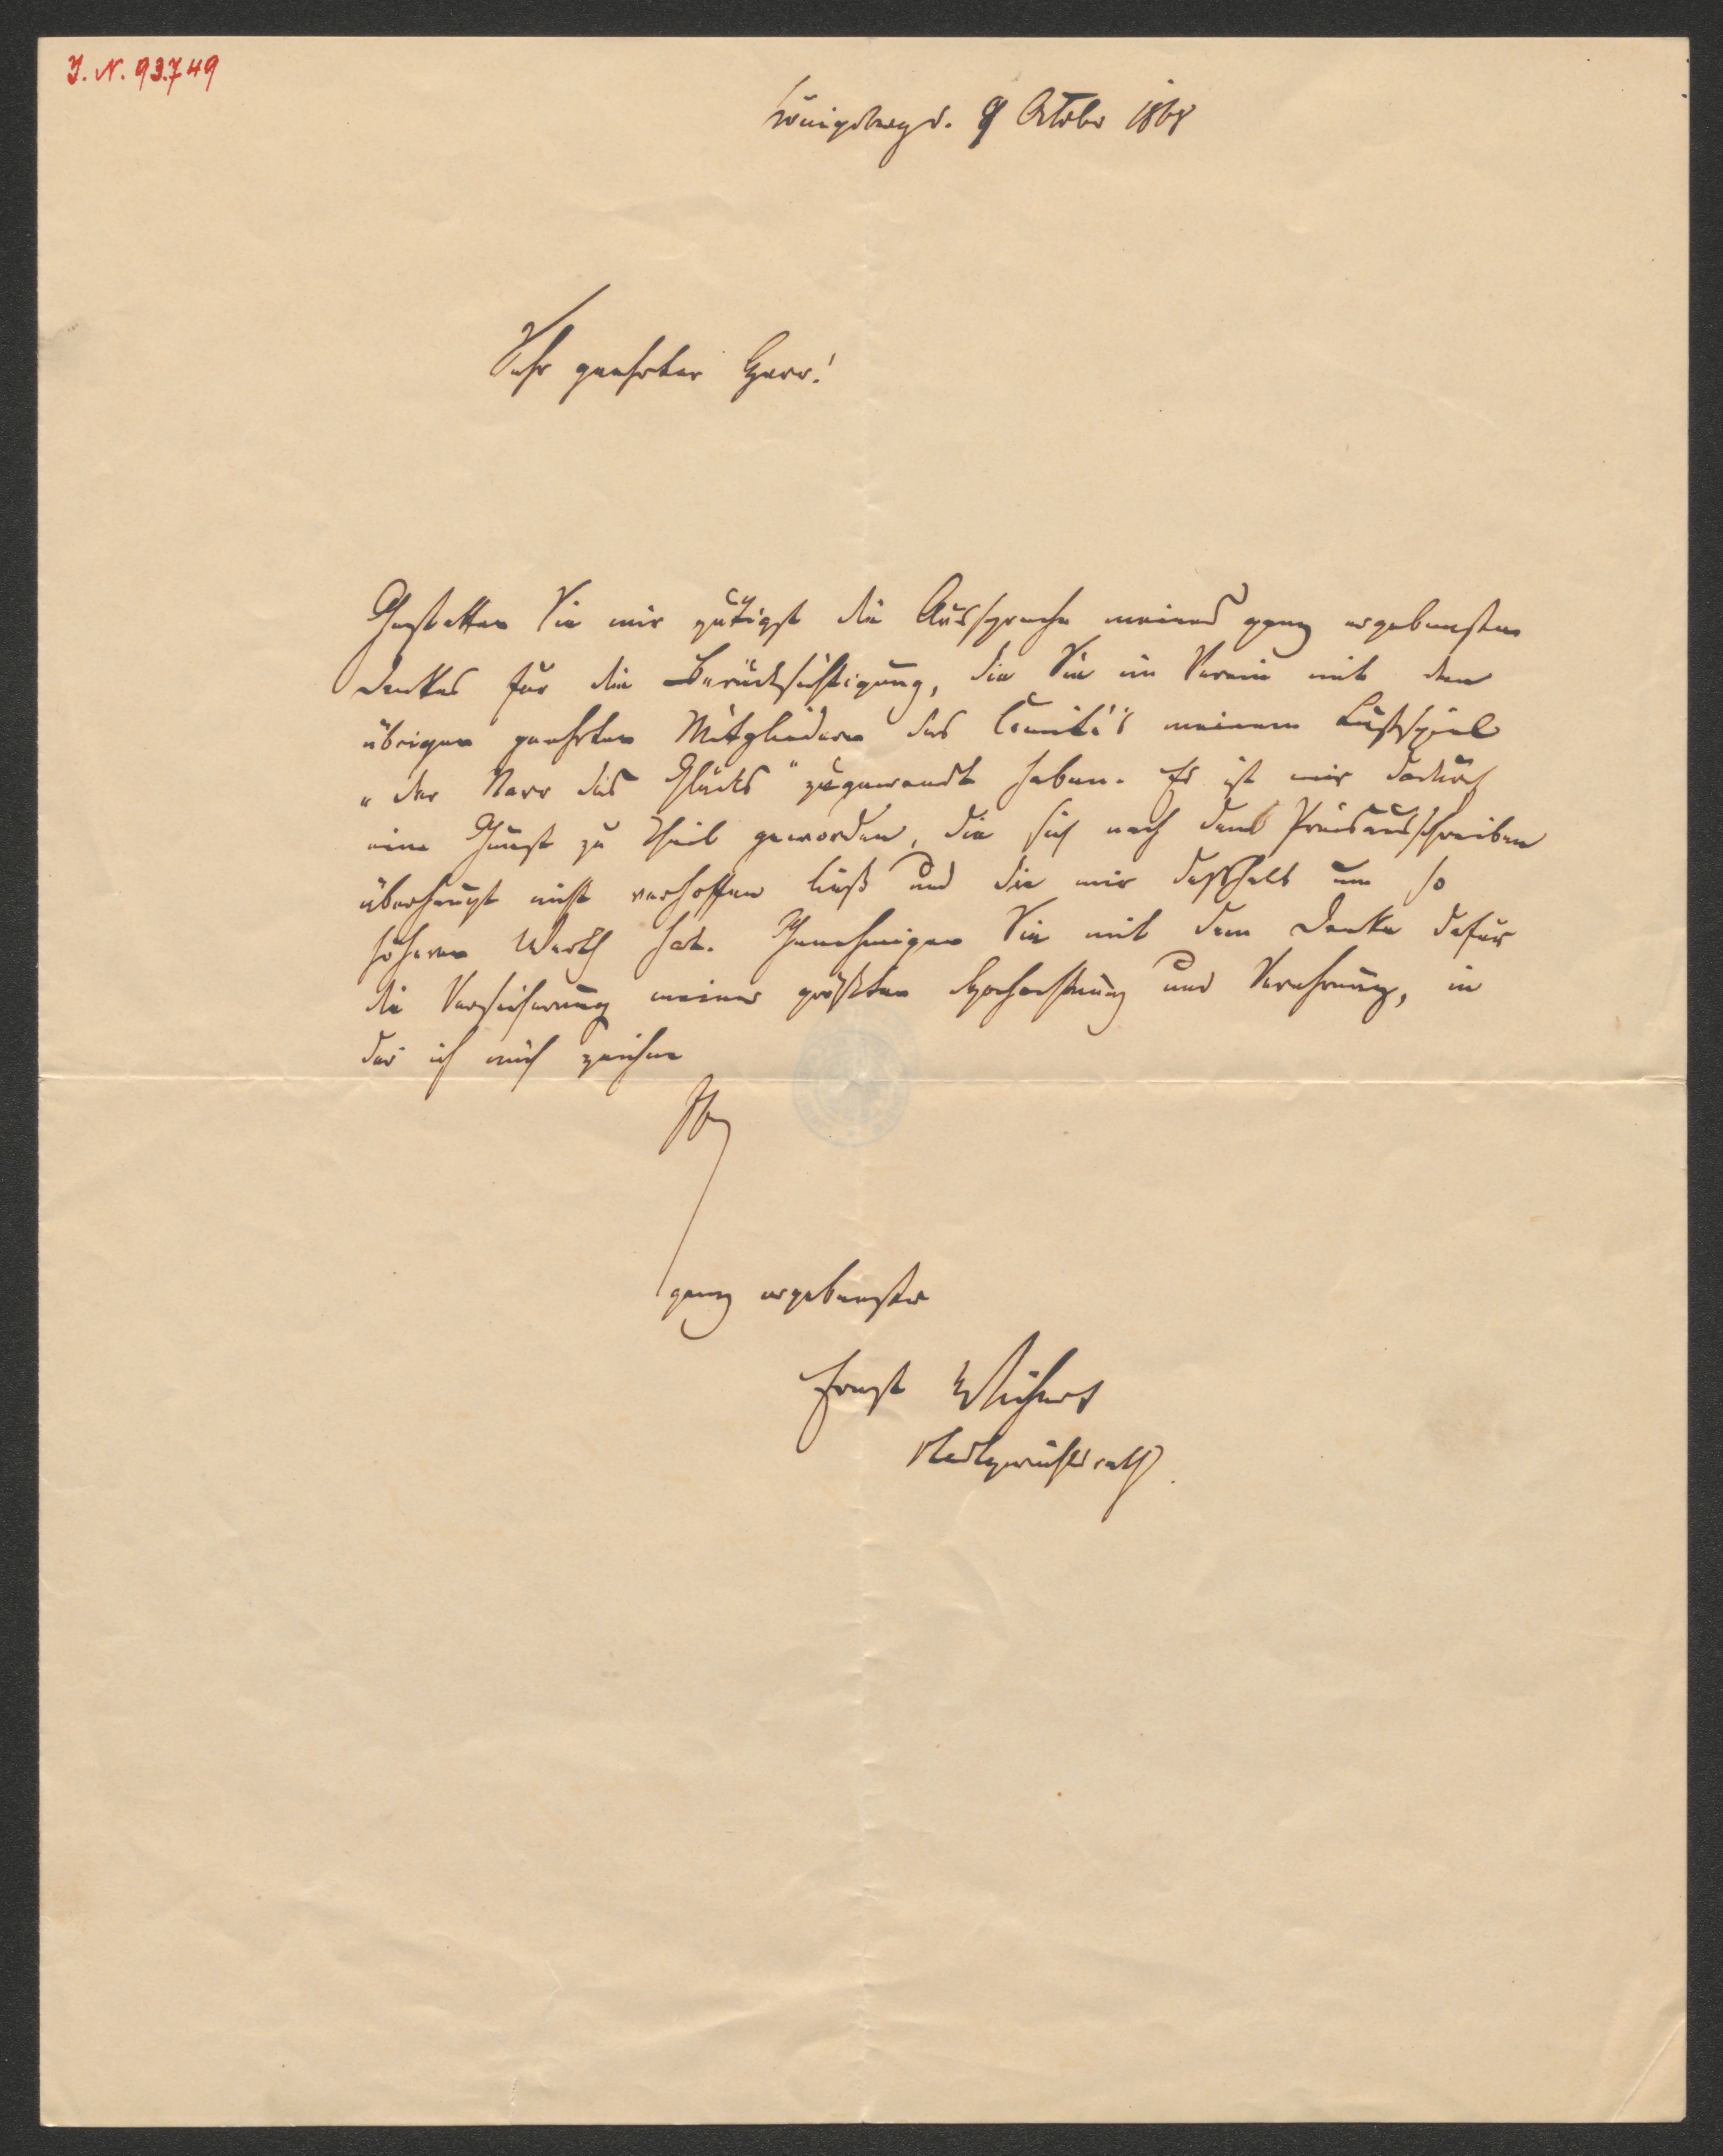 I. N. 93.749
Königsberg d. 9 October 1868
Sehr geehrter Herr!
Gestatten Sie mir gütigst die Aussprache meines ganz ergebensten
Dankes für die Berücksichtigung, die Sie im Verein mit den
übrigen geehrten Mitgliedern des Comité's meinem Lustspiel
„der Narr des Glücks" zugewandt haben. Es ist mir dadurch
eine Gunst zu Theil geworden, die sich nach dem Preisausschreiben
überhaupt nicht verhoffen ließ und die mir deßhalb um so
höheren Werth hat. Genehmigen Sie mit dem Danke dafür
die Versicherung meiner größten Hochachtung und Verehrung, in
der ich mich zeichne
Ihr
ganz ergebenster
Ernst Wichert
Stadtgerichtsrath.